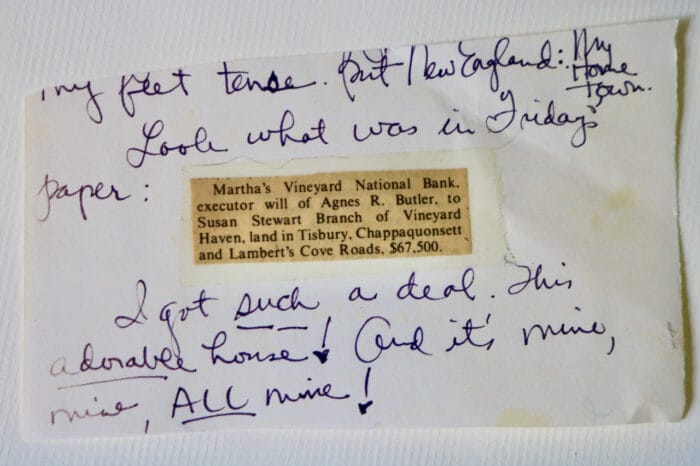 my feet tense. But New England: My
Home
Town.
Look what was in Friday's
paper:
Martha's Vineyard National Bank,
executor will of Agnes R. Butler, to
Susan Stewart Branch of Vineyard
Haven, land in Tisbury, Chappaquonsett
and Lambert's Cove Roads, $67,500.
I got such a deal. This
adorable house! And it's mine,
mine, ALL mine!